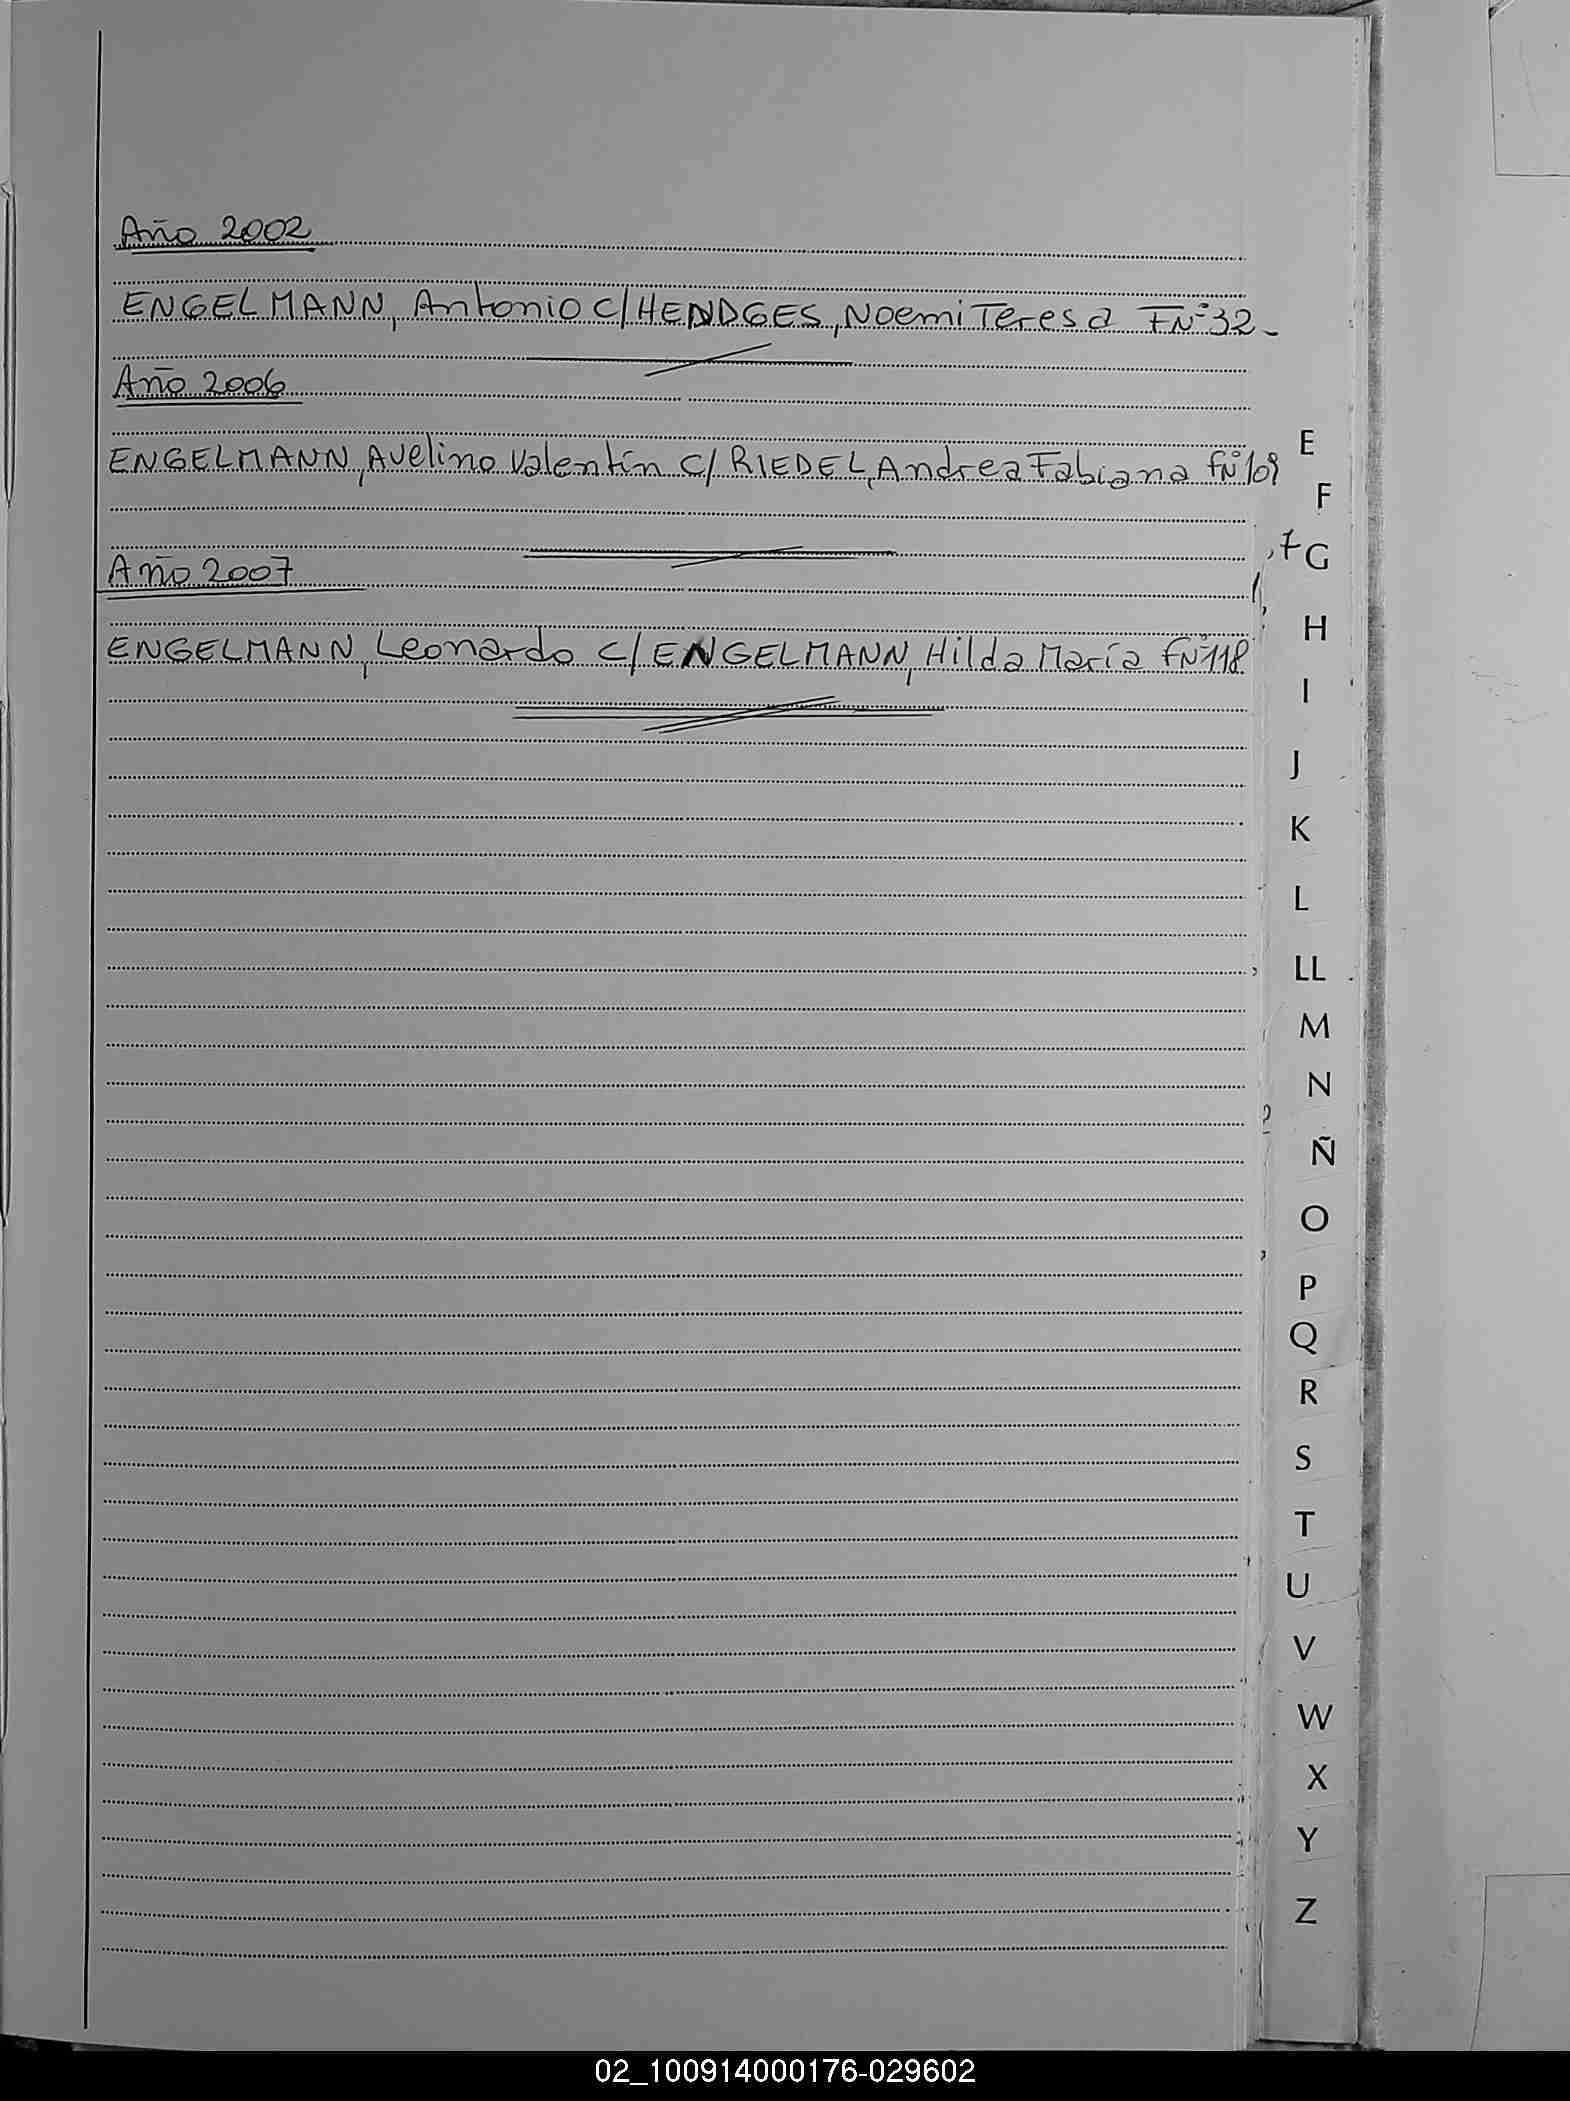 Año 2002
ENGELMANN, Antonio C/HENDGES, Noemi Teresa FNº32-
Año 2006
ENGELMANN, Avelino Valentín C/ RIEDEL, Andrea Fabiana FNº109
Año 2007
ENGELMANN, Leonardo C/ ENGELMANN, Hilda María FNº118
E
F
7
G
H
I
J
K
L
LL
M
N
Ñ
O
P
Q
R
S
T
U
V
W
X
Y
Z
02_100914000176-029602